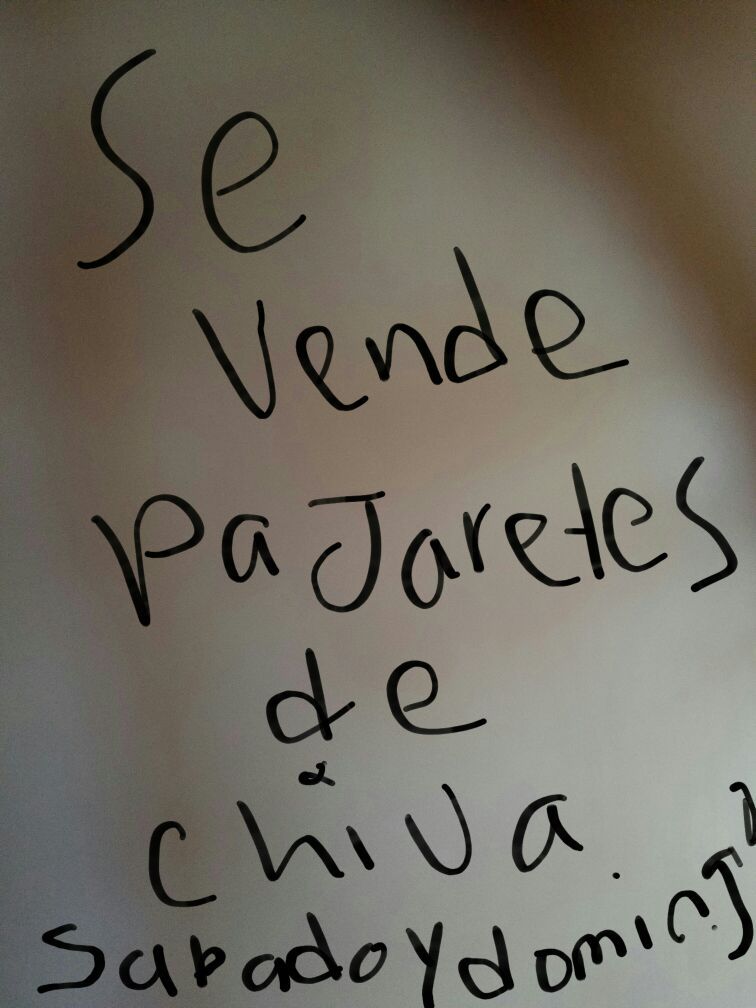 Se
Vende
PaJaretes
de
chiva
Sabado y doming